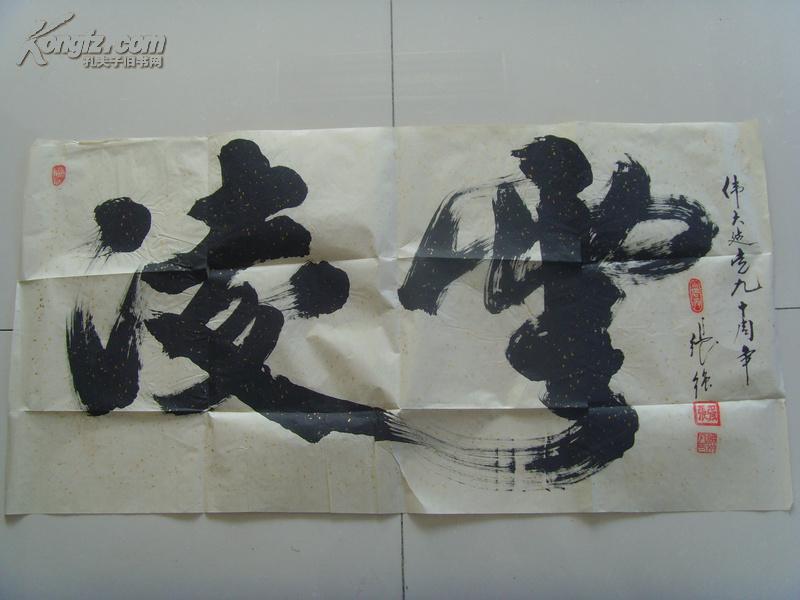 Kongfz.com
孔夫子旧书网
凌雲
伟大建党九十周年
張